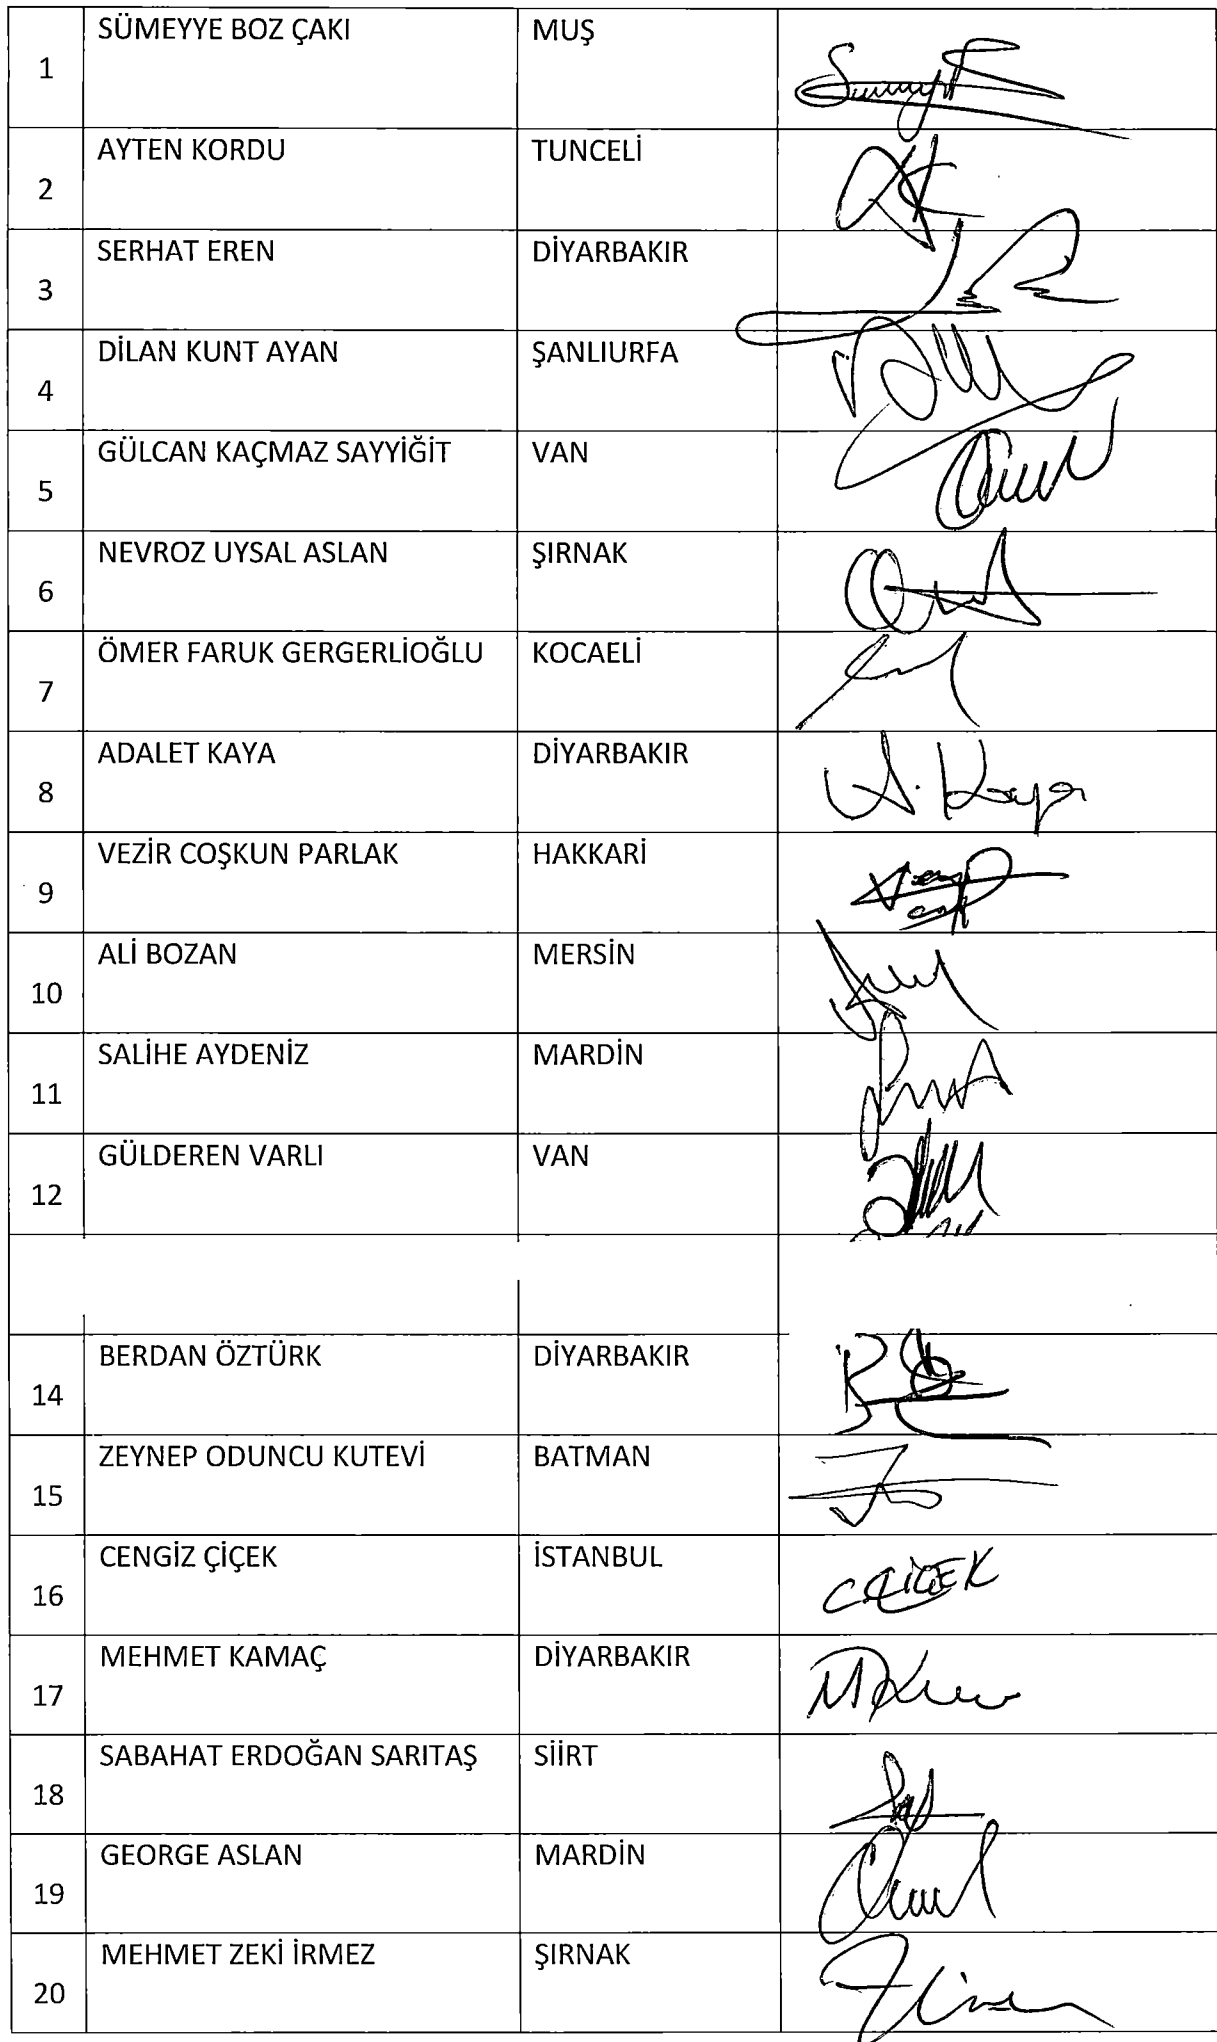 1 SÜMEYYE BOZ ÇAKI MUŞ
2 AYTEN KORDU TUNCELİ
3 SERHAT EREN DİYARBAKIR
4 DİLAN KUNT AYAN ŞANLIURFA
5 GÜLCAN KAÇMAZ SAYYİĞİT VAN
6 NEVROZ UYSAL ASLAN ŞIRNAK
7 ÖMER FARUK GERGERLİOĞLU KOCAELİ
8 ADALET KAYA DİYARBAKIR A. Kaya
9 VEZİR COŞKUN PARLAK HAKKARİ
10 ALİ BOZAN MERSİN
11 SALİHE AYDENİZ MARDİN
12 GÜLDEREN VARLI VAN
14 BERDAN ÖZTÜRK DİYARBAKIR
15 ZEYNEP ODUNCU KUTEVİ BATMAN
16 CENGİZ ÇİÇEK İSTANBUL C.ÇİÇEK
17 MEHMET KAMAÇ DİYARBAKIR
18 SABAHAT ERDOĞAN SARITAŞ SİİRT
19 GEORGE ASLAN MARDİN
20 MEHMET ZEKİ İRMEZ ŞIRNAK